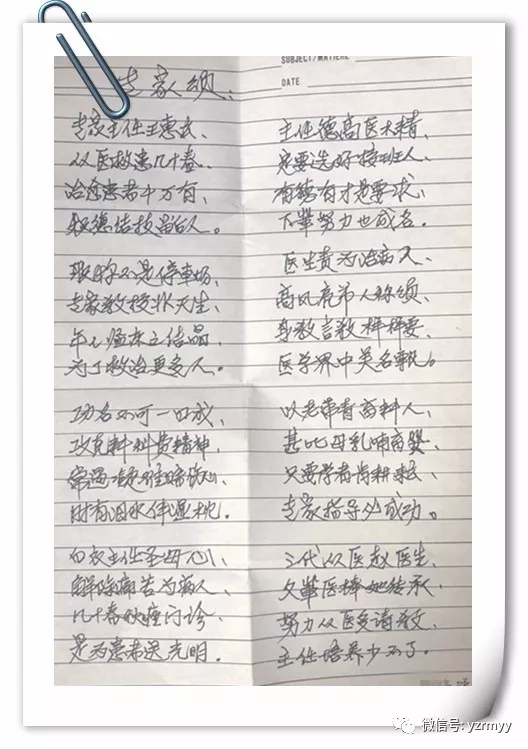 SUBJECT/MATIERE
DATE
专家颂:
专家主任王惠云、
从医救患几十春、
治愈患者千万有、
积德传技留后人。
眼胗不是停車场、
专家教授非天生、
年之临床之结晶、
为了救治更多人。
功名不可一口成、
攻克料纠费精神、
常遇凝难暗饮心、
时有泪水伴湿枕.
白衣主任圣母心、
解除痛苦为病人、
几十春秋座门诊、
是为患者送光明.
主任德高医术精、
定要选好接班人、
有德有才是要求、
下輩努力也成名.
医生责为治病人、
高风亮节人称颂、
身教言教样样要、
医学界中美名飘。
以老带青育料人、
甚比母乳哺育婴、
只要学者肯耕耘、
专家指导必成功。
三代从医赵医生、
父輩医棒她传承、
努力从医受请教、
主任培养少不了.
微信号: yzrmyy